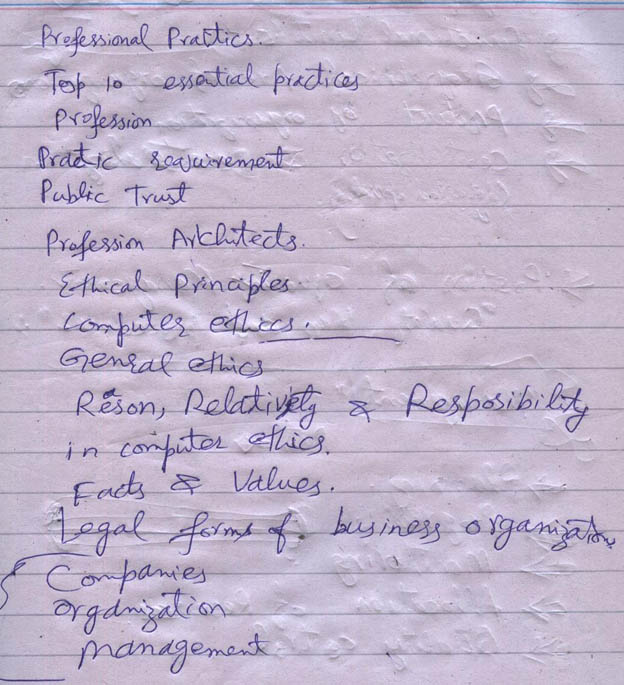 Professional Practics.
Top 10 essential practices
Profession
Practic requirement
Public Trust
Profession Architects.
Ethical Principles.
Computer ethics.
General ethics
Reson, Relativity & Resposibility
in computer ethics.
Facts & Values.
Legal forms of business organization
Companies
organization
management